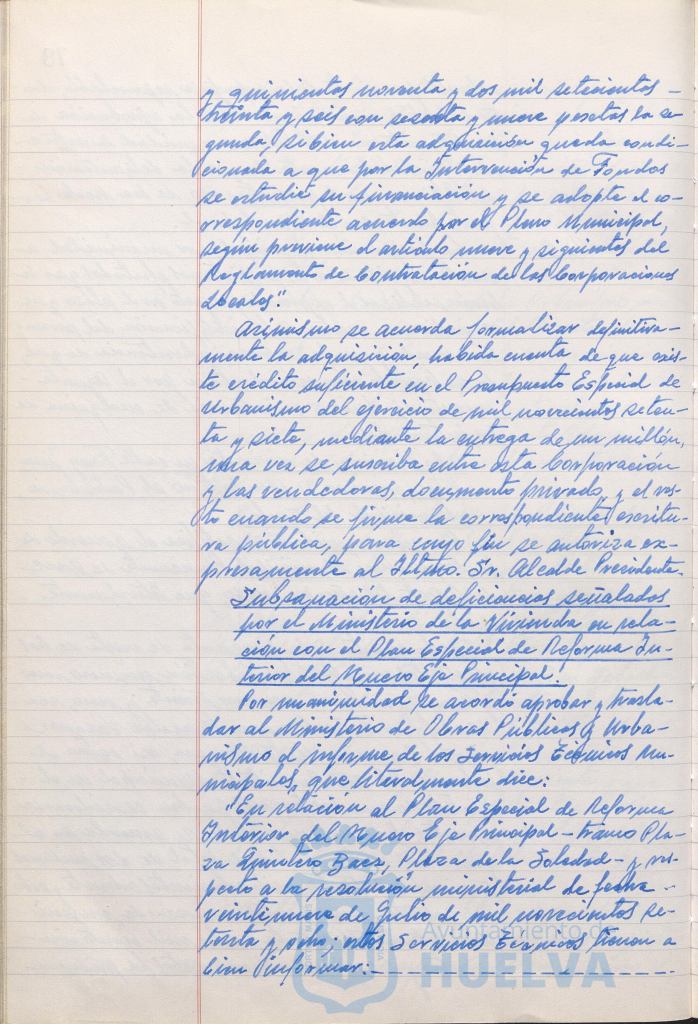 y quinientos noventa y dos mil setecientos -
treinta y seis con sesenta y nueve pesetas la se
gunda, si bien esta adquisición queda condi-
cionada a que por la Intervención de Fondos
se estudie su financiación y se adopte el co-
rrespondiente acuerdo por el Pleno Municipal,
según previene el artículo nueve y siguientes del
Reglamento de Contratación de las Corporaciones
Locales".
Asimismo se acuerda formalizar definitiva-
mente la adquisición, habida cuenta de que exis-
te crédito suficiente en el Presupuesto Especial de
Urbanismo del ejercicio de mil novecientos seten-
ta y siete, mediante la entrega de un millón,
una vez se suscriba entre esta Corporación
y las vendedoras, documento privado, y el res-
to cuando se firme la correspondiente escritu-
ra pública, para cuyo fin se autoriza ex-
presamente al Iltmo. Sr. Alcalde Presidente.
Subsanación de deficiencias señalados
por el Ministerio de la Vivienda en rela-
ción con el Plan Especial de Reforma In-
terior del Nuevo Eje Principal.
Por unanimidad se acordó aprobar y trasla-
dar al Ministerio de Obras Públicas y Urba-
nismo el informe de los Servicios Técnicos Mu-
nicipales, que literalmente dice:
"En relación al Plan Especial de Reforma
Interior del Nuevo Eje Principal - tramo Pla-
za Quintero Baez, Plaza de la Soledad - y res-
pecto a la resolución ministerial de fecha -
veintinueve de Julio de mil novecientos se-
tenta y ocho; estos Servicios Técnicos tienen a
bien informar:
Ayuntamiento de
HUELVA